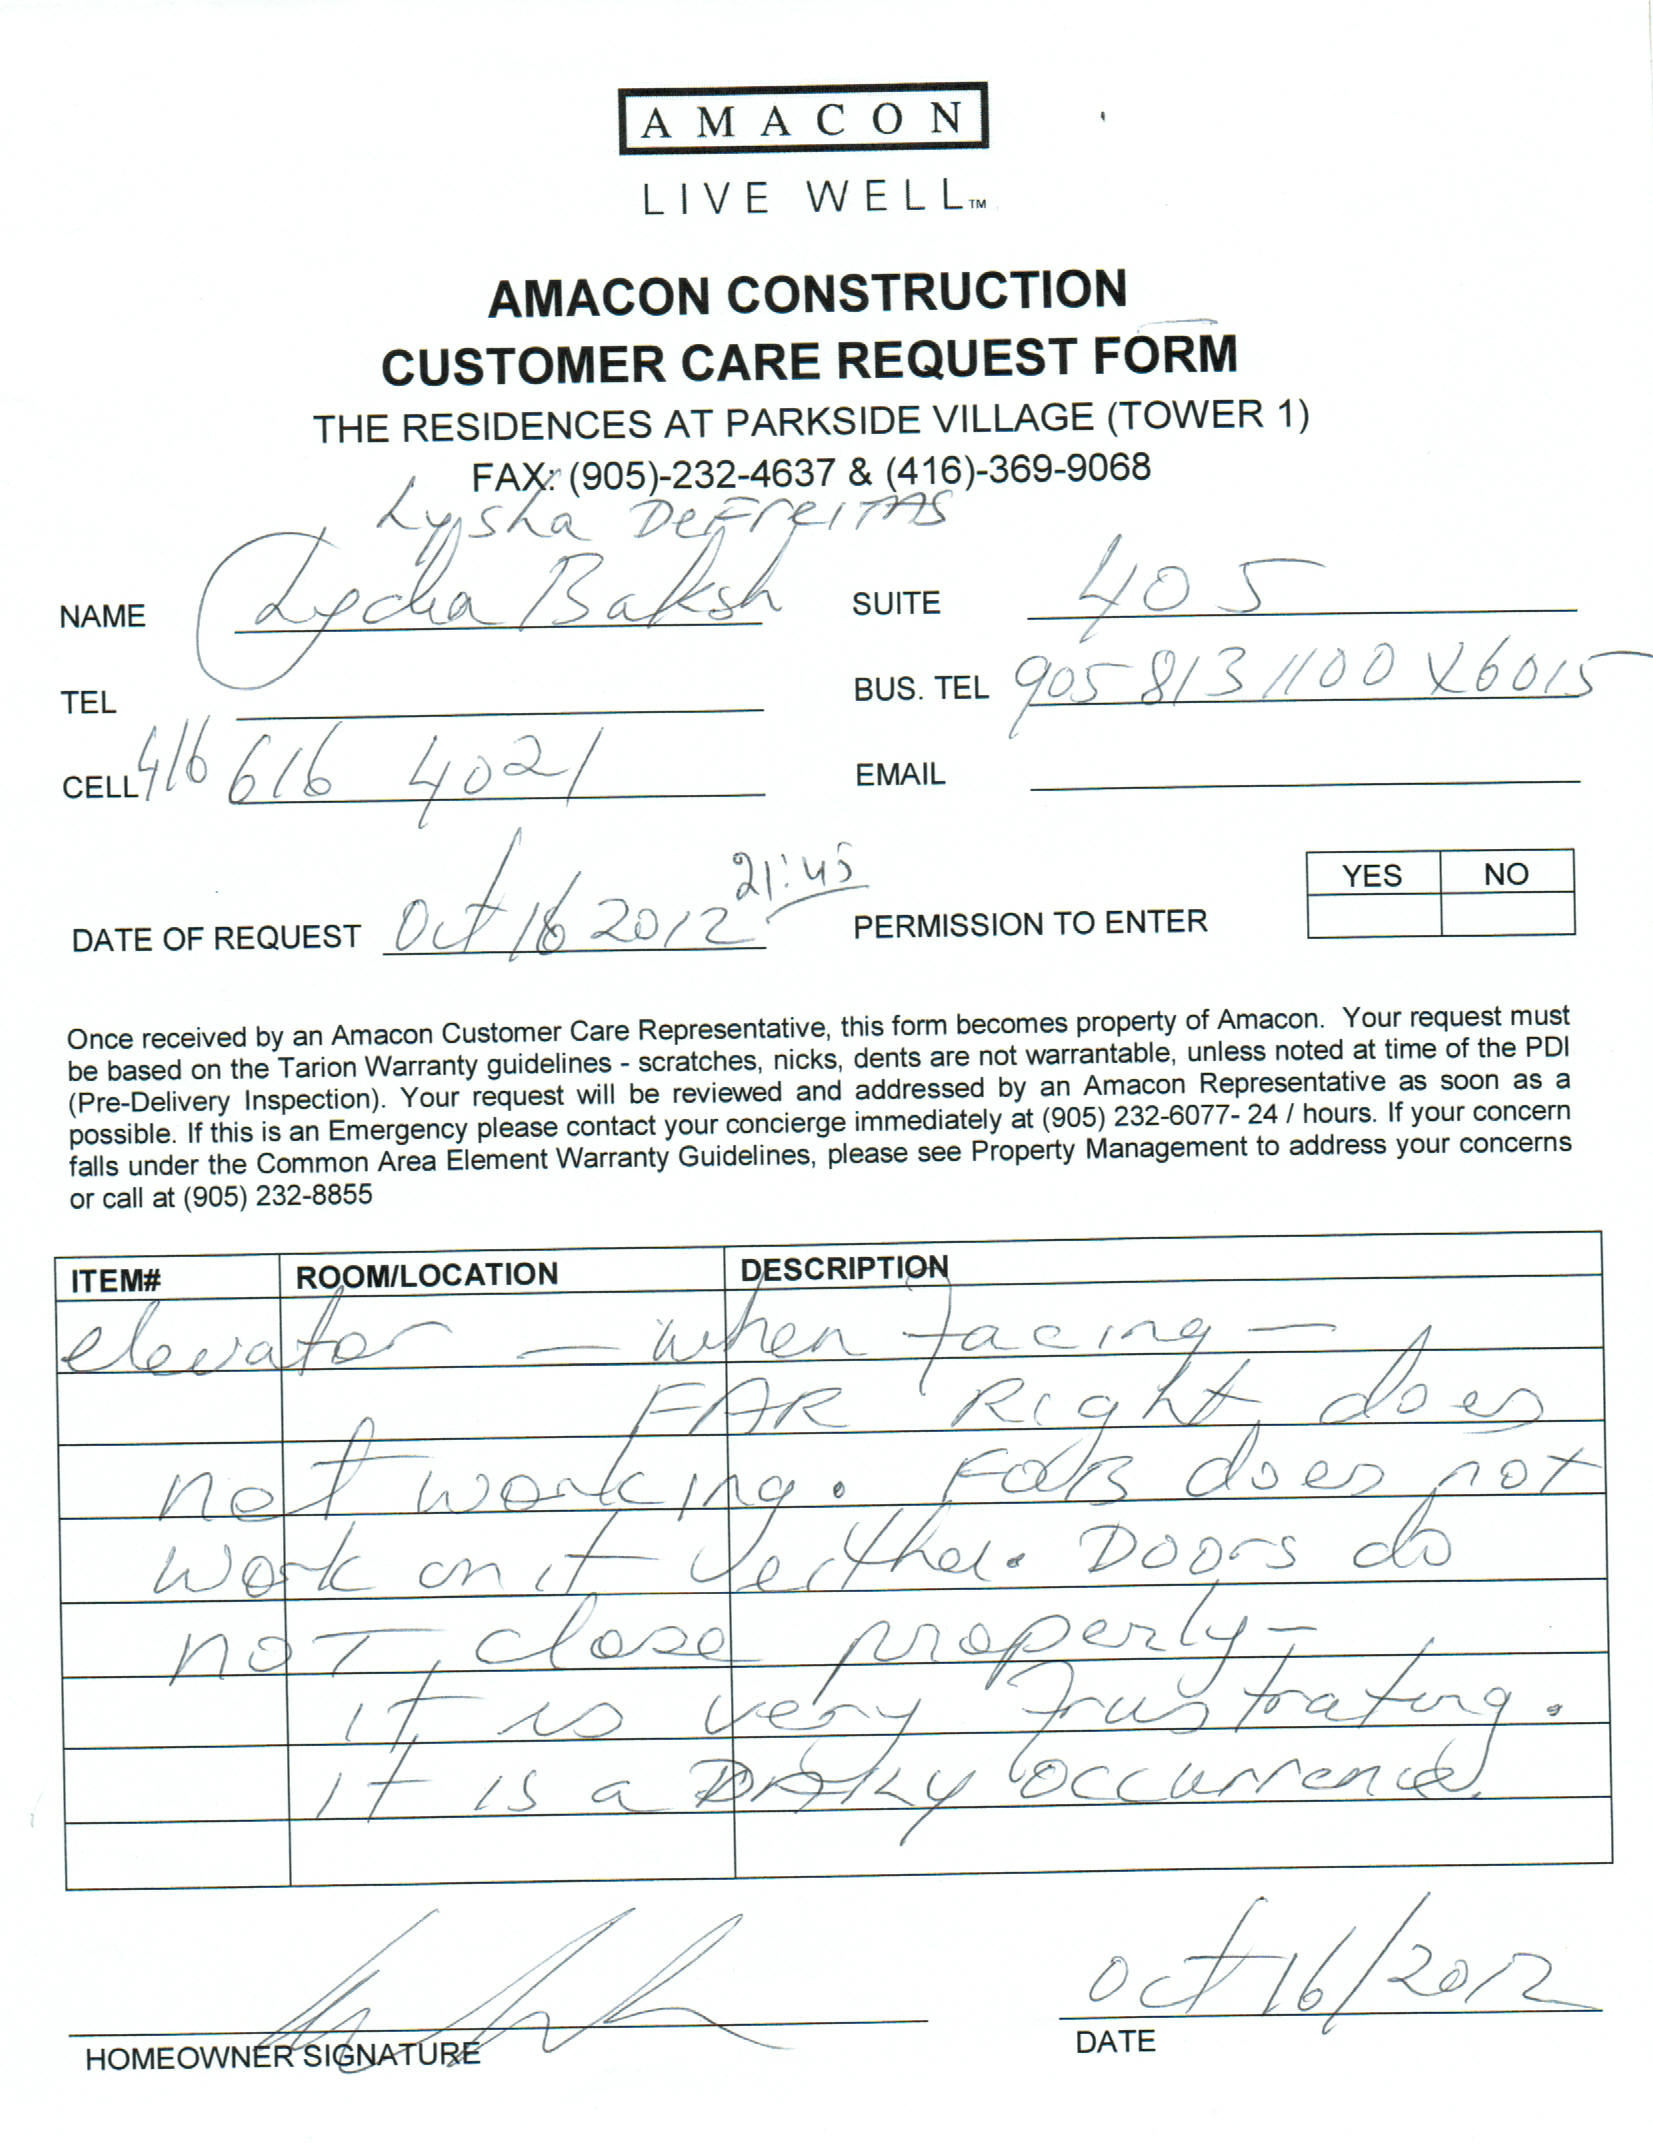 AMACON
LIVE WELL™
AMACON CONSTRUCTION
CUSTOMER CARE REQUEST FORM
THE RESIDENCES AT PARKSIDE VILLAGE (TOWER 1)
FAX: (905)-232-4637 & (416)-369-9068
Lysha DeFreitas
NAME Lydia Baksh SUITE 405
TEL BUS. TEL 905 813 1100 x6015
CELL 416 616 4021 EMAIL
DATE OF REQUEST Oct 16 2012 21:45 PERMISSION TO ENTER YES NO
Once received by an Amacon Customer Care Representative, this form becomes property of Amacon. Your request must
be based on the Tarion Warranty guidelines - scratches, nicks, dents are not warrantable, unless noted at time of the PDI
(Pre-Delivery Inspection). Your request will be reviewed and addressed by an Amacon Representative as soon as a
possible. If this is an Emergency please contact your concierge immediately at (905) 232-6077- 24 / hours. If your concern
falls under the Common Area Element Warranty Guidelines, please see Property Management to address your concerns
or call at (905) 232-8855
ITEM# ROOM/LOCATION DESCRIPTION
elevator — when facing —
FAR Right does
not working. FOB does not
work on it either. Doors do
not close properly -
it is very frustrating.
it is a DAILY occurrence.
Oct 16/2012
HOMEOWNER SIGNATURE DATE